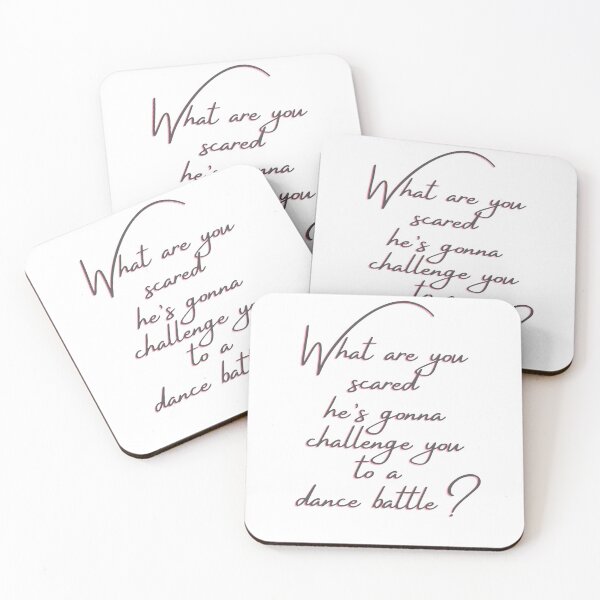 What are you
scared
he's
you
?
What are you
scared
he's gonna
challenge you
to
?
What are you
scared
he's gonna
challenge
to a
dance
What are you
scared
he's gonna
challenge you
to a
dance battle?